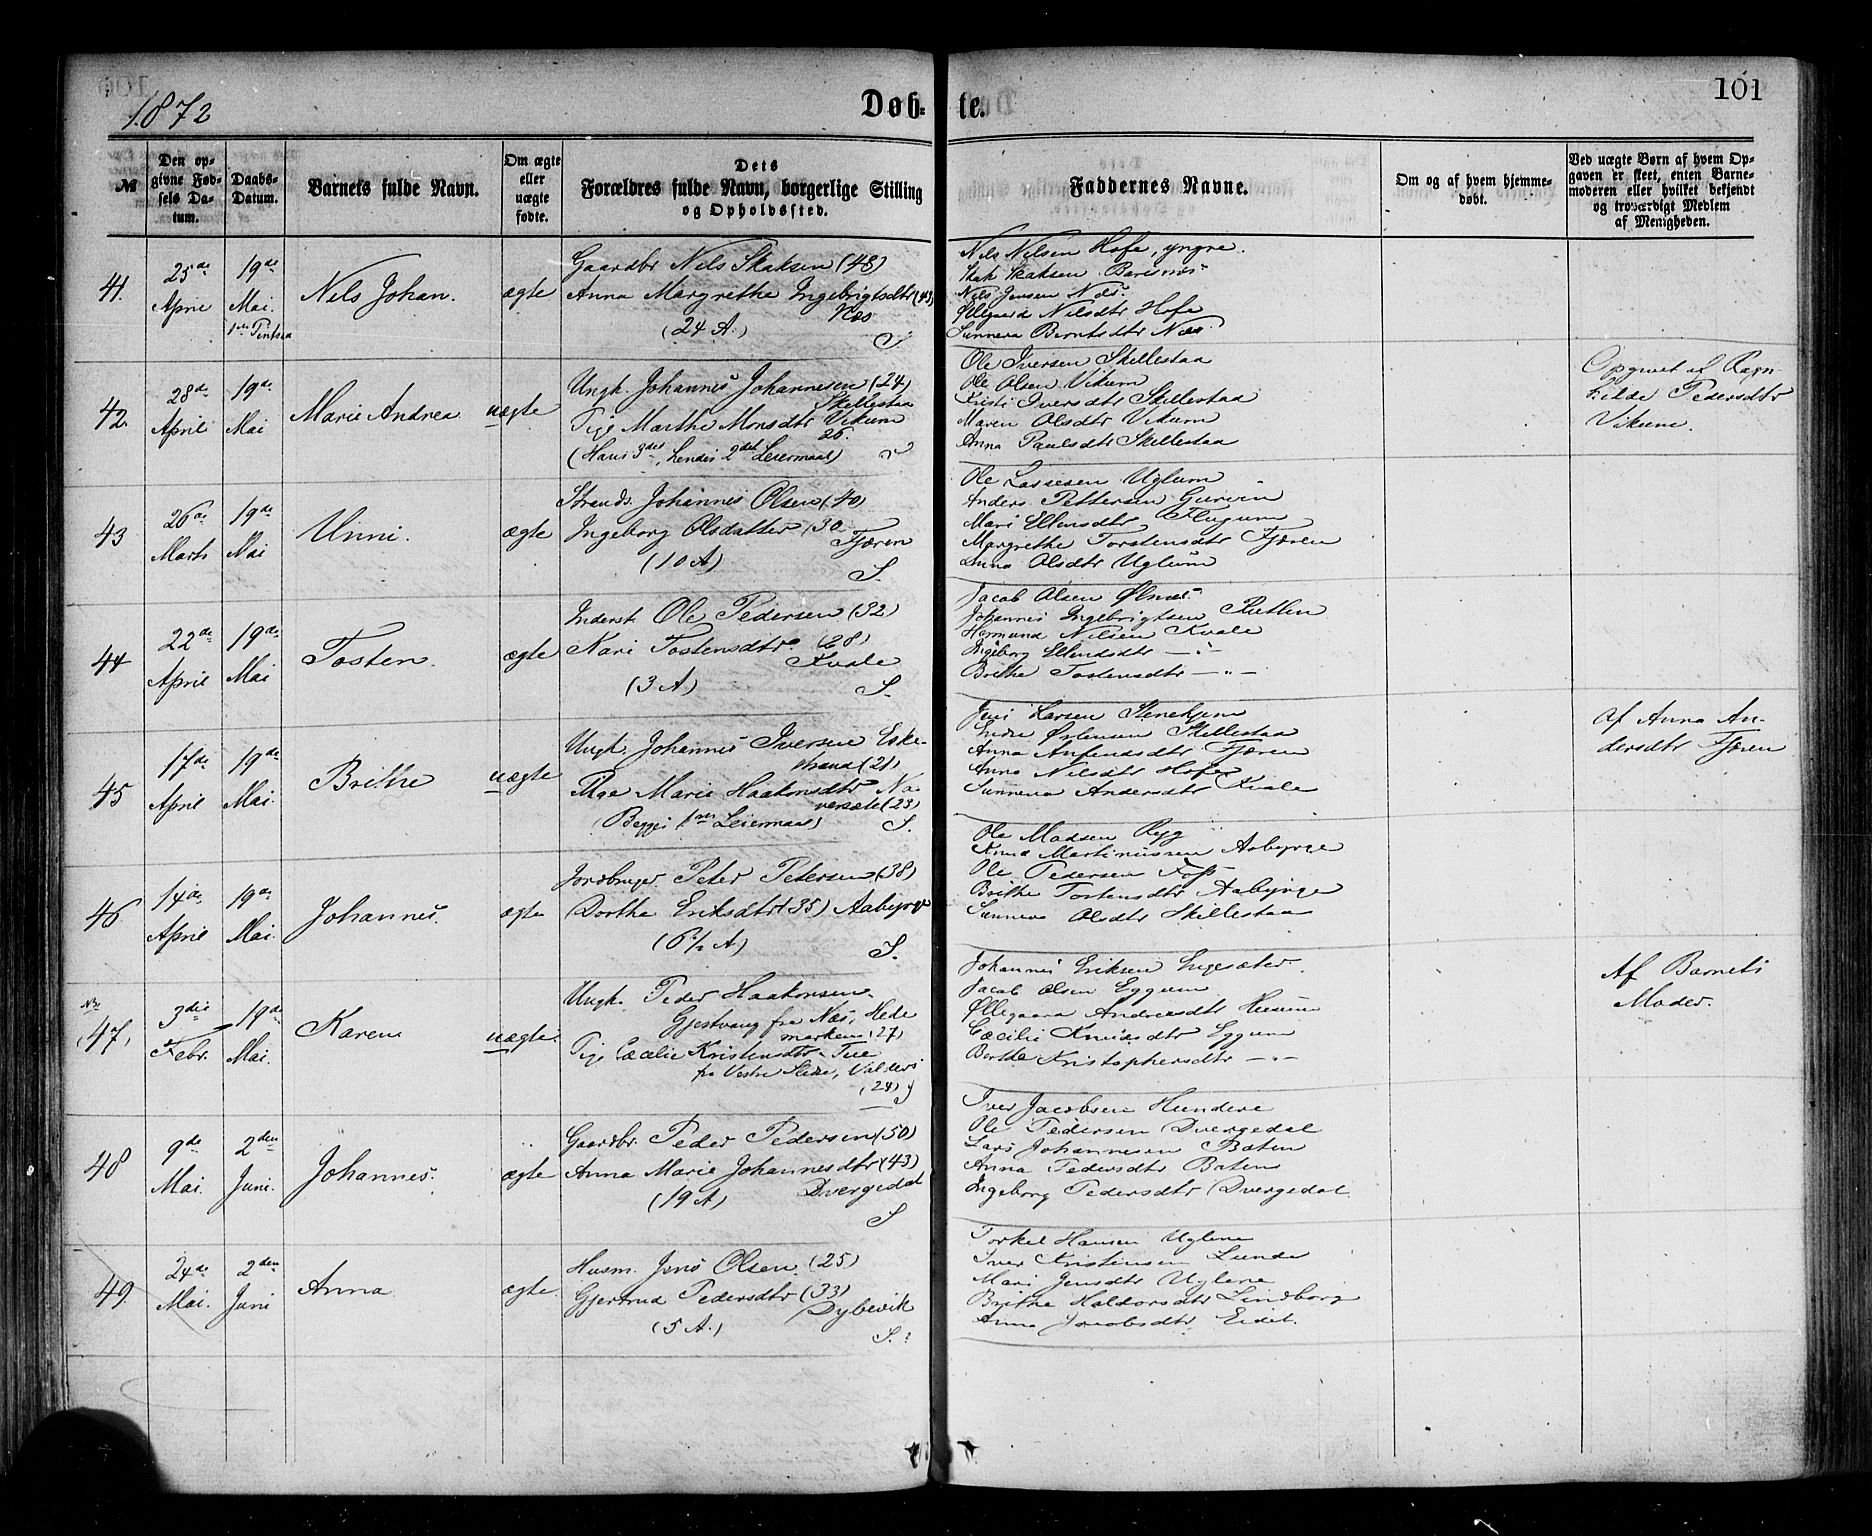 1872
Døb-te.
101
№
Den opgivne Fødsels Datum.
Daabs-Datum.
Barnets fulde Navn.
Om ægte eller uægte fødte.
Dets Forældres fulde Navn, borgerlige Stilling og Opholdssted.
Faddernes Navne.
Om og af hvem hjemmedøbt.
Ved uægte Børn af hvem Opgaven er skeet, enten Barnemoderen eller hvilket bekjendt og troværdigt Medlem af Menigheden.
41.
25de April
19de Mai. 1ste Pintsed
Nels Johan.
ægte
Gaardbr Nels Skaksen (48)
Anna Margrethe Ingebrigtsdtr (43)
Næs
(24 A.)
S
Nils Nilsen Hofe, yngre.
Skak Skaksen Barsnes
Nils Jensen Næs.
Øllegaard Nilsdtr Hofe
Sunneva Berntsdtr Næs.
42.
28de April
19de Mai
Marie Andrea
uægte
Ungk. Johannes Johannesen (24)
Skillestaa
Pige Marthe Monsdtr Vikum
26.
(Hans 3det, hendes 2det Leiermaal)
Ole Iversen Skillestaa
Ole Olsen Vikum
Kristi Iversdtr Skillestaa
Maren Olsdtr Vikum
Anna Paulsdtr Skillestaa
Opgivet af Ragn-
hilde Pedersdtr
Vikum.
43
26de Marts
19de Mai
Unni.
ægte
Strands. Johannes Olsen (40)
Ingeborg Olsdatter (30
Fjæren
(10 A)
S.
Ole Larsesen Uglum
Anders Pettersen Gurvin
Mari Ellensdtr Flugum
Margrethe Torstensdtr Fjæren
Anna Olsdtr Uglum
44
22de April
19de Mai
Tosten.
ægte
Inderst Ole Pedersen (32)
Kari Tostensdtr (28)
Kvale
(3 A)
S.
Jacob Olsen Ølnes
Johannes Ingebrigtsen Rutlin
Hermund Nilsen Kvale
Ingeborg Ellendsdtr —"—
Brithe Tostensdtr —"—
45
17de April
19de Mai.
Brithe
uægte
Ungk. Johannes Iversen Eske-
strand (21)
Pige Marie Haakonsdtr Na
versete (23)
(Begges 1ste Leiermaal)
S.
Jens Larsen Stenehjem
Endre Østensen Skillestaa
Anna Anfendsdtr Fjæren
Anna Nilsdtr Hofe
Sunneva Andersdtr Kvale
Af Anna An-
dersdtr Fjæren
46
14de April
19de Mai.
Johannes.
ægte
Jordbruger Peter Petersen (38)
Dorthe Eriksdtr (35) Aabyrge
(6½ A)
S.
Ole Madsen Rygg
Anna Martinussen Aabyrge
Ole Pedersen Foss
Brithe Torstensdtr Aabyrge
Sunneva Olsdtr Skillestaa
NB.
(47)
3die Febr.
19de Mai.
Karen
uægte.
Ungk. Peder Haakonsen
Gjestvang fra Næs, Hede
marken (27)
Pige Cæcilie Kristensdtr Tue
fra Vestre Slidre, Valders
(24) S
Johannes Eriksen Engesæter.
Jacob Olsen Eggum
Øllegaara Andersdtr Husum
Cæcilie Knudsdtr Eggum
Berthe Kristophersdtr —"—
Af Barnets
Moder.
48
9de Mai.
2den Juni.
Johannes.
ægte
Gaardbr. Peder Pedersen (50)
Anna Marie Johannesdtr (43)
(19 A) Dvergedal
S
Iver Jacobsen Hundere
Ole Pedersen Dvergedal
Lars Johannesen Baten
Anna Pedersdtr Baten
Ingeborg Pedersdtr Dvergedal.
49.
24de Mai.
2den Juni
Anna
ægte.
Husm. Jens Olsen (25)
Gjertrud Pedersdtr (33)
Dybevik
(5 A.)
S.
Torkel Hansen Uglene
Iver Kristensen Lunde
Mari Jensdtr Uglene
Brithe Haldorsdtr Lindborg
Anna Jacobsdtr Eidet.